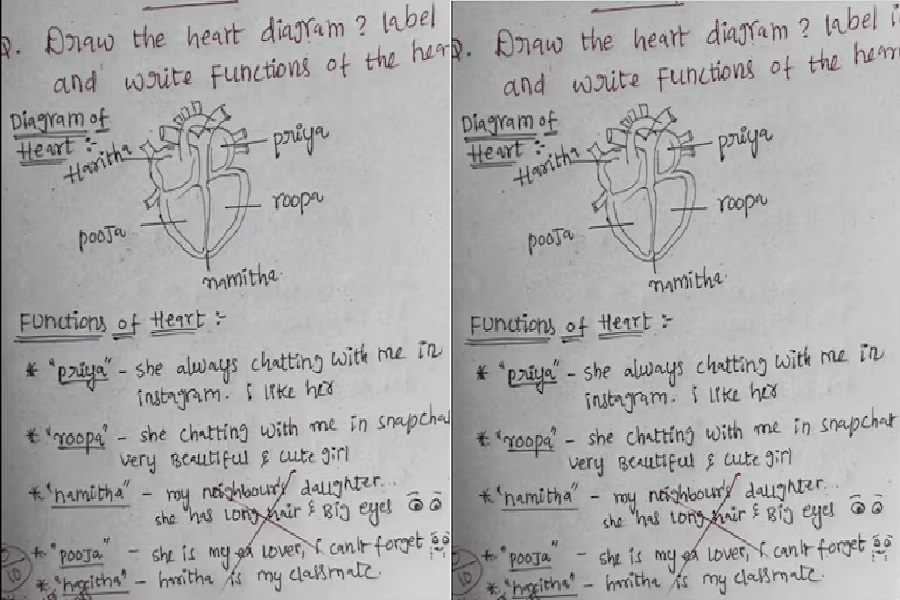 Q. Draw the heart diagram? label
and write functions of the hear
Diagram of
Heart :-
Haritha
priya
roopa
pooja
namitha
Functions of Heart :-
* "priya" - she always chatting with me in
instagram. i like her
* "roopa" - she chatting with me in snapchat
very Beautiful & cute girl
* "namitha" - my neighbour's daughter...
she has long hair & Big eyes
* "pooja" - she is my ex lover, I can't forget
* "haritha" - haritha is my classmate.
10
Q. Draw the heart diagram? label i
and write functions of the hear
Diagram of
Heart :-
Haritha
priya
roopa
pooja
namitha
Functions of Heart :-
* "priya" - she always chatting with me in
instagram. i like her
* "roopa" - she chatting with me in snapchat
very Beautiful & cute girl
* "namitha" - my neighbour's daughter...
she has long hair & Big eyes
* "pooja" - she is my ex lover, I can't forget
* "haritha" - haritha is my classmate.
10